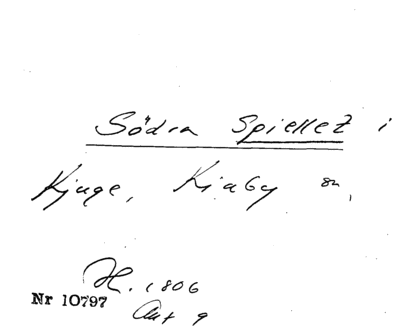 Södra Spiellet i
Kjuge, Kiaby sn,
H. 1806
Nr 10797
Aut 9